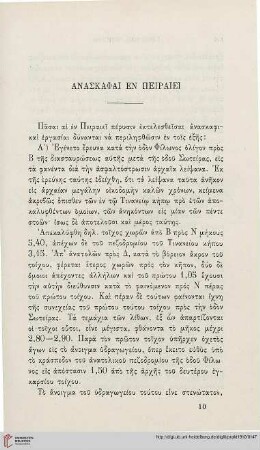 ΑΝΑΣΚΑΦΑΙ ΕΝ ΠΕΙΡΑΙΕΙ
Πᾶσαι αἱ ἐν Πειραιεῖ πέρυσιν ἐκτελεσθεῖσαι ἀνασκαφι-
καὶ ἐργασίαι δύνανται νὰ περιληφθῶσιν ἐν τοῖς ἑξῆς:
Α΄) Ἐγένετο ἔρευνα κατὰ τὴν ὁδὸν Φίλωνος ὀλίγον πρὸς
Β τῆς διασταυρώσεως αὐτῆς μετὰ τῆς ὁδοῦ Σωτείρας, εἰς
τὰ φανέντα διὰ τὴν ἀσφαλτόστρωσιν ἀρχαῖα λείψανα. Ἐκ
τῆς ἐρεύνης ταύτης ἐδείχθη, ὅτι τὰ λείψανα ταῦτα ἀνῆκον
εἰς ἀρχαίαν μεγάλην οἰκοδομὴν καλῶν χρόνων, κείμενα
ἀκριβῶς ὄπισθεν τῶν ἐν τῷ Τινανείῳ κήπῳ πρὸ ἐτῶν ἀπο-
καλυφθέντων ὁμοίων, τῶν ἀνηκόντων εἰς μίαν τῶν πέντε
στοῶν· ἴσως δὲ ἀποτελοῦσι καὶ μέρος ταύτης.
Ἀπεκαλύφθη δηλ. τοῖχος χωρῶν ἀπὸ Β πρὸς Ν μήκους
5,40, ἀπέχων δὲ τοῦ πεζοδρομίου τοῦ Τινανείου κήπου
3,15. Ἀπ᾽ ἀνατολῶν πρὸς Δ, κατὰ τὸ βόρειον ἄκρον τοῦ
τοίχου, φέρεται ἕτερος χωρῶν πρὸς τὸν κῆπον, δύο δὲ
ὅμοιοι ἀπέχοντες ἀλλήλων καὶ τοῦ πρώτου 1,05 ἔχουσι
τὴν αὐτὴν διεύθυνσιν κατὰ τὸ φαινόμενον πρὸς Ν πέρας
τοῦ πρώτου τοίχου. Καὶ πέραν δὲ τούτων φαίνονται ἴχνη
τῆς συνεχείας τοῦ πρώτου τούτου τοίχου πρὸς τὴν ὁδὸν
Σωτείρας. Τὰ τεμάχια τῶν λίθων, ἐξ ὧν ἀπαρτίζονται
οἱ τοῖχοι οὗτοι, εἶνε μέγιστα, φθάνοντα τὸ μῆκος μέχρι
2,80—2,90. Παρὰ τὸν πρῶτον τοῖχον ὑπῆρχεν ὀχετὸς
ἄγων εἰς τὸ ἄνοιγμα ὑδραγωγείου, ὅπερ ἔκειτο εὐθὺς ὑπὸ
τὸ κράσπεδον τοῦ ἀνατολικοῦ πεζοδρομίου τῆς ὁδοῦ Φίλω-
νος εἰς ἀπόστασιν 1,50 ἀπὸ τῆς ἀρχῆς τοῦ δευτέρου ἐγ-
καρσίου τοίχου.
Τὸ ἄνοιγμα τοῦ ὑδραγωγείου τούτου εἶνε στενώτατον,
10